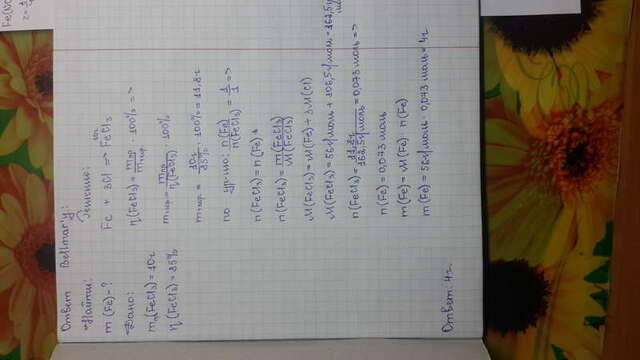 Ответ Bellmary:
Найти:
m (Fe)-?
Дано:
mпр(FeCl3) = 10г
η (FeCl3) = 85%
Решение:
Fe + 3Cl → FeCl3
η(FeCl3) = mпр/mтеор · 100% =>
mтеор = mпр/η(FeCl3) · 100%
mтеор = 10г/85% · 100% = 11,8г
по ур-нию: n(Fe)/n(FeCl3) = 1/1 =>
n(FeCl3) = n(Fe)
n(FeCl3) = m(FeCl3)/M(FeCl3)
M(FeCl3) = M(Fe) + 3M(Cl)
M(FeCl3) = 56г/моль + 106,5г/моль = 162,5г/моль
n(FeCl3) = 11,8г/162,5г/моль = 0,073 моль =>
n(Fe) = 0,073 моль
m(Fe) = M(Fe) · n(Fe)
m(Fe) = 56г/моль · 0,073 моль = 4г
Ответ: 4г.